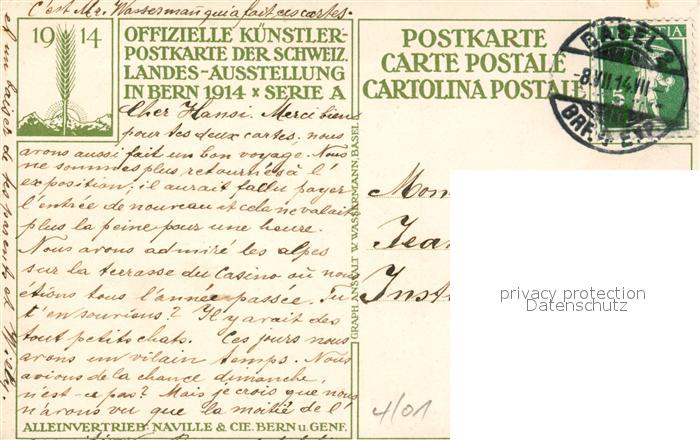 C'est Mr. Wasserman qui a fait ces cartes.
19 14
OFFIZIELLE KÜNSTLER-
POSTKARTE DER SCHWEIZ.
LANDES-AUSSTELLUNG
IN BERN 1914 × SERIE A
Cher Hansi. Merci bien
pour tes deux cartes. nous
avons aussi fait un bon voyage. Nous
ne sommes plus retournés à l'
exposition; il aurait fallu payer
l'entrée de nouveau et cela ne valait
plus la peine pour une heure.
Nous avons admiré les alpes
sur la terrasse du Casino où nous
étions tous l'année passée. Tu
t'en souviens? Il y avait des
tout petits chats. Ces jours nous
avons un vilain temps. Nous
avions de la chance dimanche,
n'est-ce pas? Mais je crois que nous
n'avons vu que la moitié de l'
ALLEINVERTRIEB: NAVILLE & CIE. BERN u. GENF.
et un baiser de tes parents et
GRAPH. ANSTALT W. WASSERMANN, BASEL
POSTKARTE
CARTE POSTALE
CARTOLINA POSTALE
BASEL 2
-8.VII.14.VII
BRF. EXP.
5
Mon
Jean
Inst
privacy protection
Datenschutz
4/01